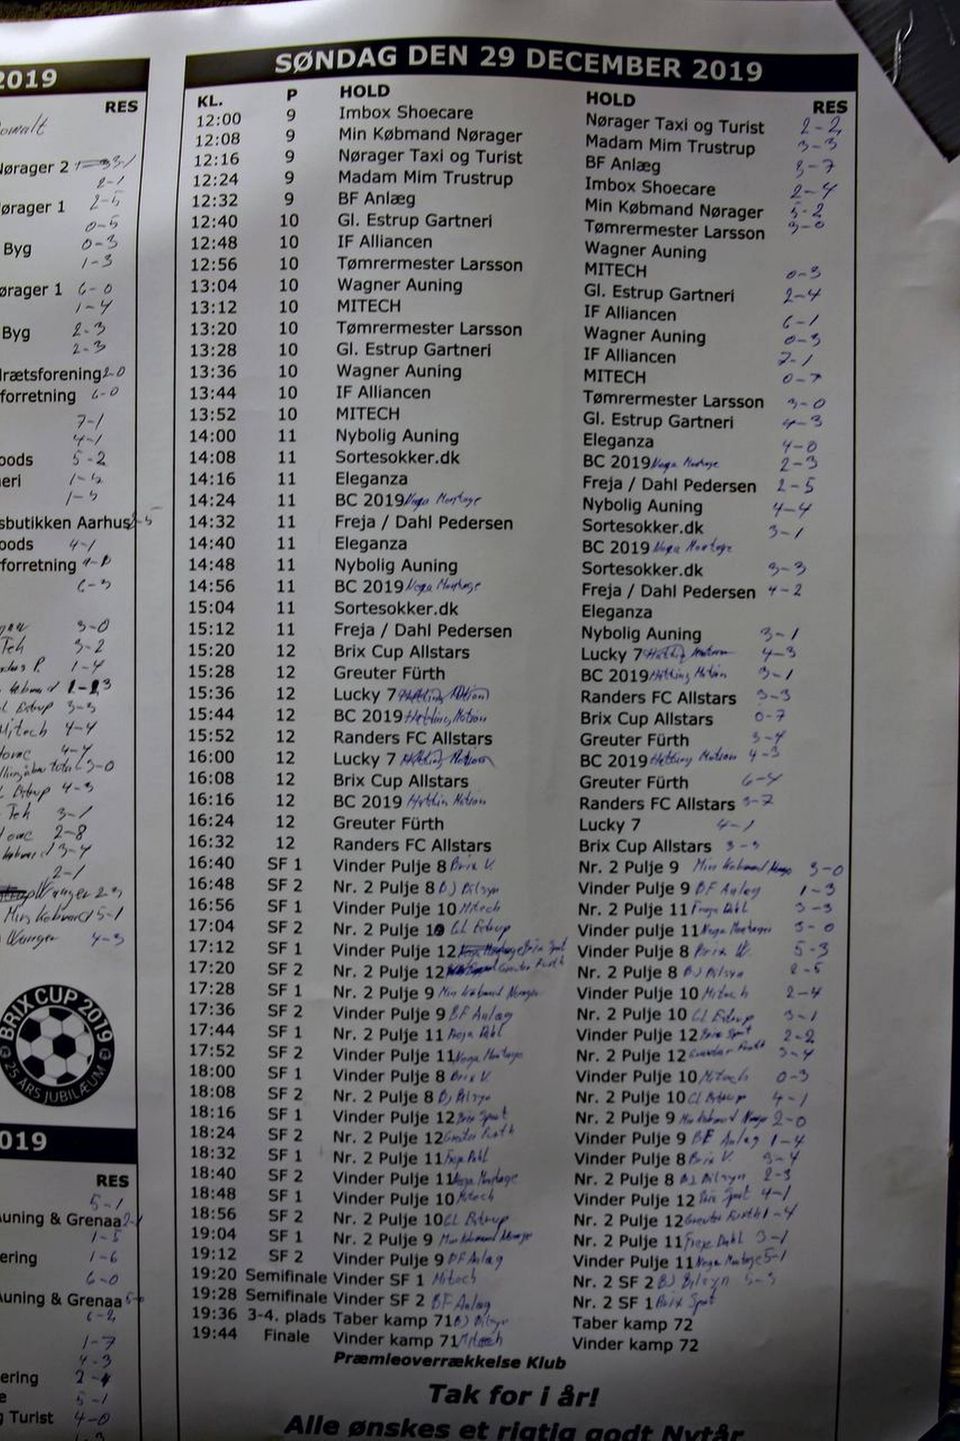 2019
RES
Nørager 2
2-1
ørager 1 2-5
0-5
Byg 0-3
1-3
ørager 1 6-0
1-4
Byg 2-3
2-3
drætsforening 2-0
forretning 6-0
7-1
4-1
oods 5-2
eri
1-5
sbutikken Aarhus
oods 4-1
forretning
6-3
3-0
Teh 3-2
1-4
3-3
Mitech 4-4
4-4
3-0
4-3
Teh 3-1
2-8
3-4
2-1
2-3
Min Købmand 5-1
4-3
BRIX CUP 2019
25 ÅRS JUBILÆUM
019
RES
5-1
Auning & Grenaa
1-5
ering 1-6
6-0
Auning & Grenaa
6-2
1-7
4-3
ering
e 5-1
g Turist 4-0
SØNDAG DEN 29 DECEMBER 2019
KL. P HOLD HOLD RES
12:00 9 Imbox Shoecare Nørager Taxi og Turist 2-2
12:08 9 Min Købmand Nørager Madam Mim Trustrup 3-3
12:16 9 Nørager Taxi og Turist BF Anlæg 3-7
12:24 9 Madam Mim Trustrup Imbox Shoecare 2-4
12:32 9 BF Anlæg Min Købmand Nørager 5-2
12:40 10 Gl. Estrup Gartneri Tømrermester Larsson 3-0
12:48 10 IF Alliancen Wagner Auning
12:56 10 Tømrermester Larsson MITECH 0-3
13:04 10 Wagner Auning Gl. Estrup Gartneri 2-4
13:12 10 MITECH IF Alliancen 6-1
13:20 10 Tømrermester Larsson Wagner Auning 0-3
13:28 10 Gl. Estrup Gartneri IF Alliancen 7-1
13:36 10 Wagner Auning MITECH 0-7
13:44 10 IF Alliancen Tømrermester Larsson 3-0
13:52 10 MITECH Gl. Estrup Gartneri 4-3
14:00 11 Nybolig Auning Eleganza 4-0
14:08 11 Sortesokker.dk BC 2019 Vega Montage 2-3
14:16 11 Eleganza Freja / Dahl Pedersen 2-5
14:24 11 BC 2019 Vega Montage Nybolig Auning 4-4
14:32 11 Freja / Dahl Pedersen Sortesokker.dk 3-1
14:40 11 Eleganza BC 2019 Vega Montage
14:48 11 Nybolig Auning Sortesokker.dk 3-3
14:56 11 BC 2019 Vega Montage Freja / Dahl Pedersen 4-2
15:04 11 Sortesokker.dk Eleganza
15:12 11 Freja / Dahl Pedersen Nybolig Auning 3-1
15:20 12 Brix Cup Allstars Lucky 7 4-3
15:28 12 Greuter Fürth BC 2019 3-1
15:36 12 Lucky 7 Randers FC Allstars 3-3
15:44 12 BC 2019 Brix Cup Allstars 0-7
15:52 12 Randers FC Allstars Greuter Fürth 3-4
16:00 12 Lucky 7 BC 2019 4-3
16:08 12 Brix Cup Allstars Greuter Fürth 6-4
16:16 12 BC 2019 Randers FC Allstars 3-7
16:24 12 Greuter Fürth Lucky 7 4-1
16:32 12 Randers FC Allstars Brix Cup Allstars 3-3
16:40 SF 1 Vinder Pulje 8 Brix V. Nr. 2 Pulje 9 3-0
16:48 SF 2 Nr. 2 Pulje 8 BJ Bilsyn Vinder Pulje 9 BF Anlæg 1-3
16:56 SF 1 Vinder Pulje 10 Mitech Nr. 2 Pulje 11 Freja Dahl 3-3
17:04 SF 2 Nr. 2 Pulje 10 Gl Estrup Vinder pulje 11 Vega Montage 3-0
17:12 SF 1 Vinder Pulje 12 Brix Spot Vinder Pulje 8 Brix V. 5-3
17:20 SF 2 Nr. 2 Pulje 12 Greuter Fürth Nr. 2 Pulje 8 BJ Bilsyn 2-5
17:28 SF 1 Nr. 2 Pulje 9 Min Købmand Nørager Vinder Pulje 10 Mitech 2-4
17:36 SF 2 Vinder Pulje 9 BF Anlæg Nr. 2 Pulje 10 Gl Estrup 3-1
17:44 SF 1 Nr. 2 Pulje 11 Freja Dahl Vinder Pulje 12 Brix Spot 2-2
17:52 SF 2 Vinder Pulje 11 Vega Montage Nr. 2 Pulje 12 Greuter Fürth 3-4
18:00 SF 1 Vinder Pulje 8 Brix V. Vinder Pulje 10 Mitech 0-3
18:08 SF 2 Nr. 2 Pulje 8 BJ Bilsyn Nr. 2 Pulje 10 Gl Estrup 4-1
18:16 SF 1 Vinder Pulje 12 Brix Spot Nr. 2 Pulje 9 Min Købmand Nørager 2-0
18:24 SF 2 Nr. 2 Pulje 12 Greuter Fürth Vinder Pulje 9 BF Anlæg 1-4
18:32 SF 1 Nr. 2 Pulje 11 Freja Dahl Vinder Pulje 8 Brix V. 3-4
18:40 SF 2 Vinder Pulje 11 Vega Montage Nr. 2 Pulje 8 BJ Bilsyn 2-3
18:48 SF 1 Vinder Pulje 10 Mitech Vinder Pulje 12 Brix Spot 4-1
18:56 SF 2 Nr. 2 Pulje 10 Gl Estrup Nr. 2 Pulje 12 Greuter Fürth 1-4
19:04 SF 1 Nr. 2 Pulje 9 Min Købmand Nørager Nr. 2 Pulje 11 Freja Dahl 3-1
19:12 SF 2 Vinder Pulje 9 BF Anlæg Vinder Pulje 11 Vega Montage 5-1
19:20 Semifinale Vinder SF 1 Mitech Nr. 2 SF 2 BJ Bilsyn 5-3
19:28 Semifinale Vinder SF 2 BF Anlæg Nr. 2 SF 1 Brix Spot
19:36 3-4. plads Taber kamp 71 BJ Bilsyn Taber kamp 72
19:44 Finale Vinder kamp 71 Mitech Vinder kamp 72
Præmieoverrækkelse Klub
Tak for i år!
Alle ønskes et rigtig godt Nytår